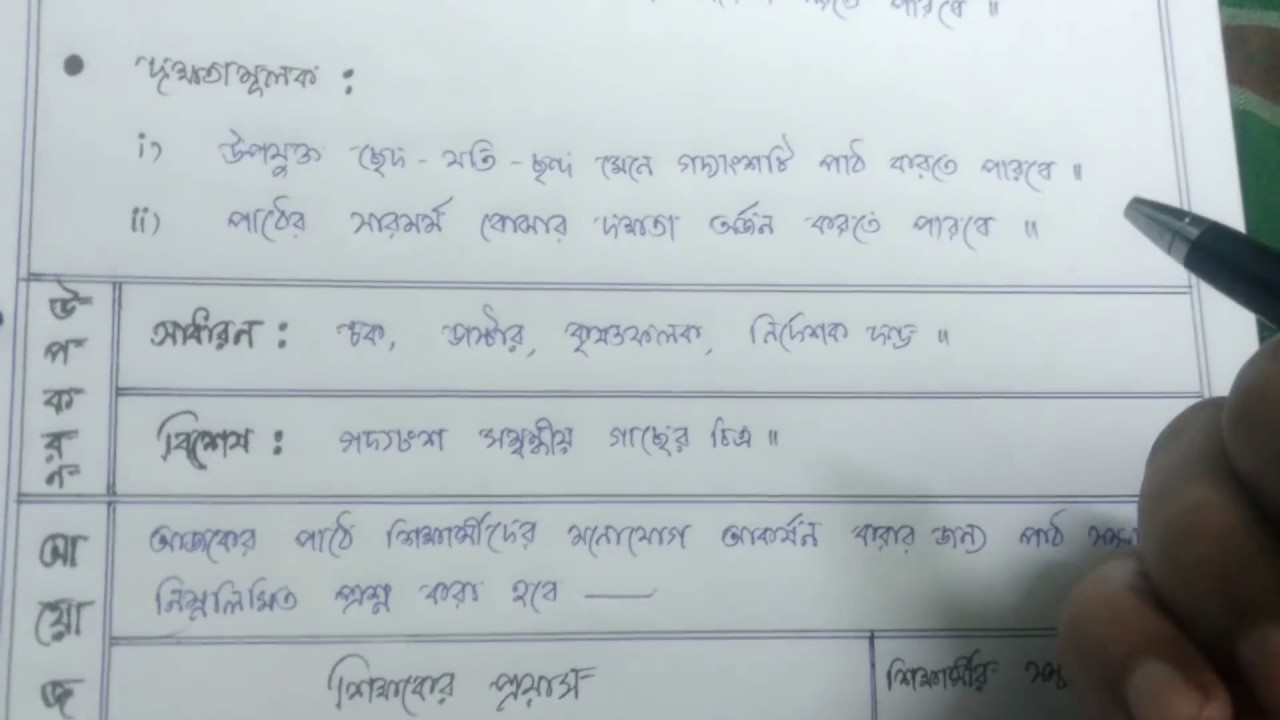 পারবে ॥
● দক্ষতামূলক :
i) উপযুক্ত ছেদ - যতি - ছন্দ মেনে গদ্যাংশটি পাঠ করতে পারবে ॥
ii) পাঠের সারমর্ম বোঝার দক্ষতা অর্জন করতে পারবে ॥
উপকরণ
সাধারন : চক, ডাস্টার, কৃষ্ণফলক, নির্দেশক দন্ড ॥
বিশেষ : গদ্যাংশ সম্বন্ধীয় গাছের চিত্র ॥
আয়োজ
আজকের পাঠে শিক্ষার্থীদের মনোযোগ আকর্ষন করার জন্য পাঠ
নিম্নলিখিত প্রশ্ন করা হবে —
শিক্ষকের প্রয়াস
শিক্ষার্থীর